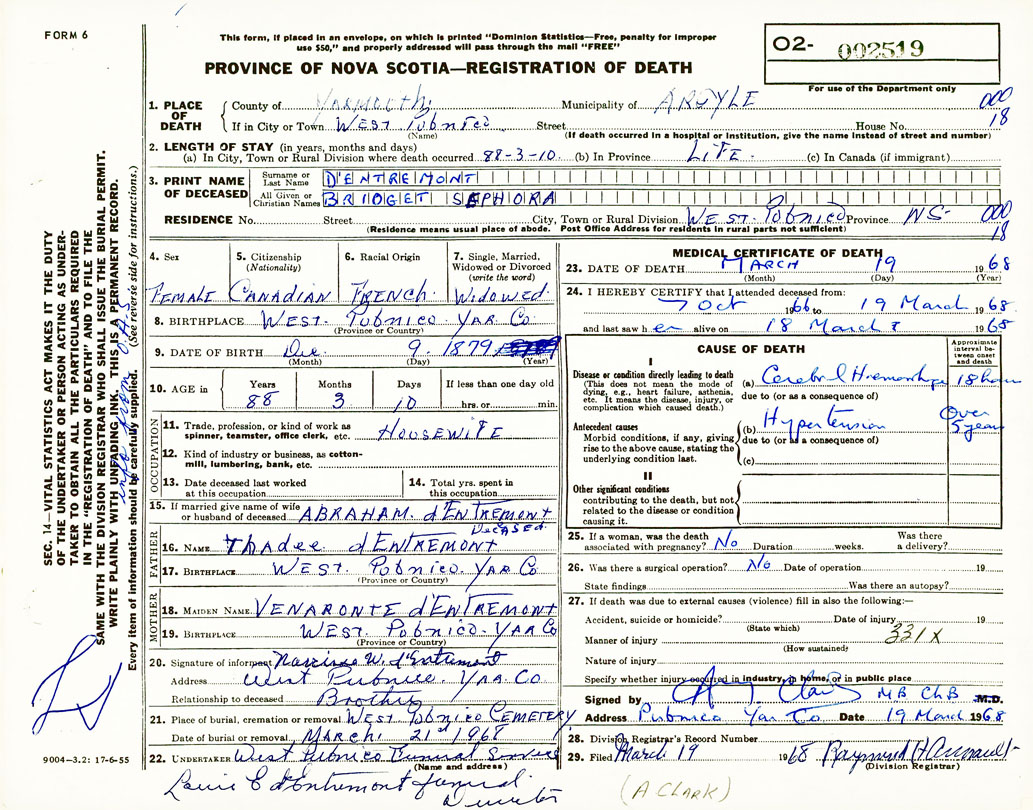 FORM 6
This form, if placed in an envelope, on which is printed "Dominion Statistics—Free, penalty for improper
use $50," and properly addressed will pass through the mail "FREE"
PROVINCE OF NOVA SCOTIA—REGISTRATION OF DEATH
O2- 002519
For use of the Department only
SEC. 14—VITAL STATISTICS ACT MAKES IT THE DUTY
OF THE UNDERTAKER OR PERSON ACTING AS UNDER-
TAKER TO OBTAIN ALL THE PARTICULARS REQUIRED
IN THE "REGISTRATION OF DEATH" AND TO FILE THE
SAME WITH THE DIVISION REGISTRAR WHO SHALL ISSUE THE BURIAL PERMIT.
WRITE PLAINLY WITH UNFADING INK. THIS IS A PERMANENT RECORD.
Every item of information should be carefully supplied. (See reverse side for instructions.)
info from
1. PLACE OF DEATH
County of Yarmouth Municipality of ARGYLE 000
If in City or Town WEST. Pubnico Street House No. 18
(Name) (If death occurred in a hospital or institution, give the name instead of street and number)
2. LENGTH OF STAY (in years, months and days)
(a) In City, Town or Rural Division where death occurred 88-3-10 (b) In Province LIFE. (c) In Canada (if immigrant)
3. PRINT NAME OF DECEASED
Surname or Last Name D'ENTREMONT
All Given or Christian Names BRIDGET SEPHORA
RESIDENCE No. Street City, Town or Rural Division WEST. Pubnico Province NS- 000
(Residence means usual place of abode. Post Office Address for residents in rural parts not sufficient) 18
4. Sex 5. Citizenship (Nationality) 6. Racial Origin 7. Single, Married, Widowed or Divorced (write the word)
FEMALE CANADIAN FRENCH. WIDOWED.
8. BIRTHPLACE WEST. Pubnico. YAR Co.
(Province or Country)
9. DATE OF BIRTH Dec. 9. 1879
(Month) (Day) (Year)
10. AGE in Years Months Days If less than one day old
88 3 10 hrs. or min.
OCCUPATION
11. Trade, profession, or kind of work as spinner, teamster, office clerk, etc. HOUSEWIFE
12. Kind of industry or business, as cotton-mill, lumbering, bank, etc.
13. Date deceased last worked at this occupation 14. Total yrs. spent in this occupation
15. If married give name of wife or husband of deceased ABRAHAM. d'ENTREMONT
DECASED.
FATHER
16. NAME Thadee d'ENTREMONT
17. BIRTHPLACE WEST. Pubnico YAR Co
(Province or Country)
MOTHER
18. MAIDEN NAME VENARONTE d'ENTREMONT
19. BIRTHPLACE WEST. Pubnico. YAR Co
(Province or Country)
20. Signature of informant Narcisse W. d'Entremont
Address West Pubnico. YAR. Co.
Relationship to deceased Brother
21. Place of burial, cremation or removal WEST Pubnico CEMETERY
Date of burial or removal MARCH. 21st 1968
22. UNDERTAKER West Pubnico Funeral Service
(Name and address)
Louis E d'Entremont funeral
Director
9004-3.2: 17-6-55
MEDICAL CERTIFICATE OF DEATH
23. DATE OF DEATH MARCH 19 1968
(Month) (Day) (Year)
24. I HEREBY CERTIFY that I attended deceased from:
7 Oct 1966 to 19 March 1968
and last saw her alive on 18 March 1968
CAUSE OF DEATH
Approximate interval between onset and death
I
Disease or condition directly leading to death
(This does not mean the mode of dying, e.g., heart failure, asthenia, etc. It means the disease, injury, or complication which caused death.)
(a) Cerebral Haemorrhage 18 hours
due to (or as a consequence of)
Antecedent causes
Morbid conditions, if any, giving rise to the above cause, stating the underlying condition last.
(b) Hypertension Over 5 years
due to (or as a consequence of)
(c)
II
Other significant conditions
contributing to the death, but not related to the disease or condition causing it.
25. If a woman, was the death associated with pregnancy? No Duration weeks. Was there a delivery?
26. Was there a surgical operation? No Date of operation 19
State findings Was there an autopsy?
27. If death was due to external causes (violence) fill in also the following:—
Accident, suicide or homicide? Date of injury 19
(State which) 331X
Manner of injury
(How sustained)
Nature of injury
Specify whether injury occurred in industry, in home, or in public place
Signed by MB ChB M.D.
Address Pubnico Yar. Co. Date 19 March 1968
28. Division Registrar's Record Number
29. Filed March 19 1968
(Division Registrar)
(A CLARK)